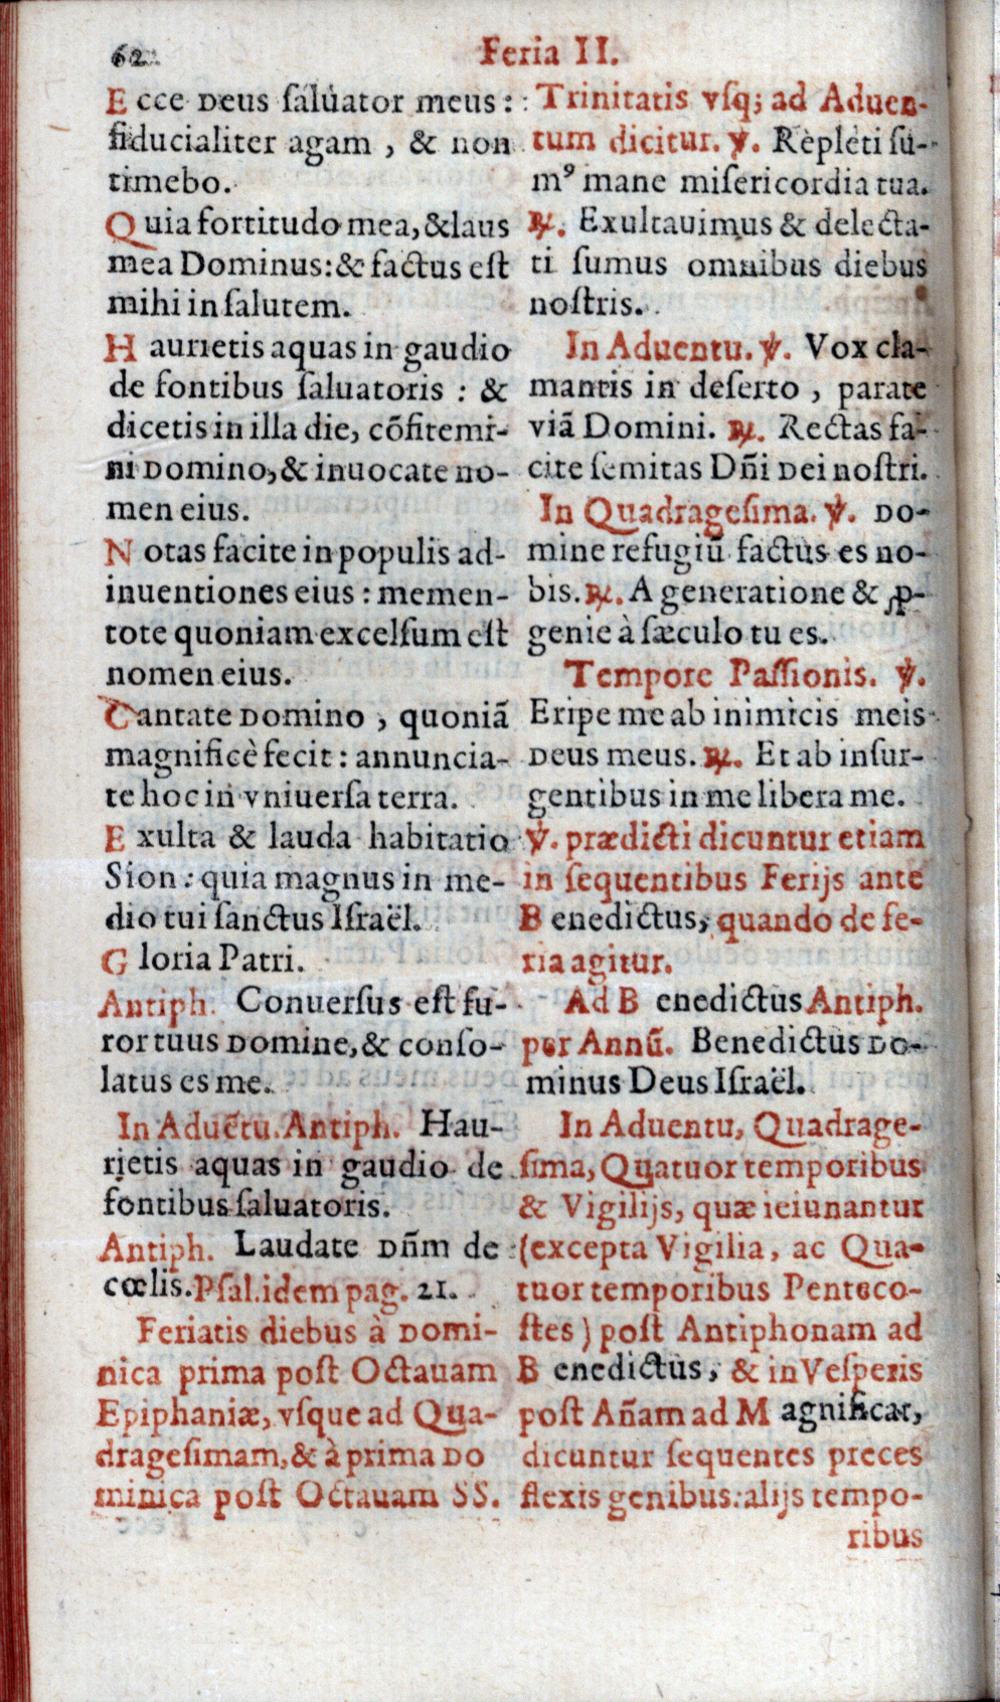 62
Feria II.
Ecce Deus saluator meus:
fiducialiter agam, & non
timebo.
Quia fortitudo mea, & laus
mea Dominus: & factus est
mihi in salutem.
Haurietis aquas in gaudio
de fontibus saluatoris : &
dicetis in illa die, cõfitemi-
ni Domino, & inuocate no-
men eius.
Notas facite in populis ad-
inuentiones eius : memen-
tote quoniam excelsum est
nomen eius.
Cantate Domino, quoniã
magnificè fecit : annuncia-
te hoc in vniuersa terra.
Exulta & lauda habitatio
Sion : quia magnus in me-
dio tui sanctus Israël.
Gloria Patri.
Antiph. Conuersus est fu-
ror tuus Domine, & conso-
latus es me.
In Aduẽtu. Antiph. Hau-
rietis aquas in gaudio de
fontibus saluatoris.
Antiph. Laudate Dñm de
cœlis. Psal. idem pag. 21.
Feriatis diebus à Domi-
nica prima post Octauam
Epiphaniæ, vsque ad Qua-
dragesimam, & à prima Do
minica post Octauam SS.
Trinitatis vsq; ad Aduen-
tum dicitur. ℣. Repleti su-
mꝰ mane misericordia tua.
℟. Exultauimus & delecta-
ti sumus omnibus diebus
nostris.
In Aduentu. ℣. Vox cla-
mantis in deserto, parate
viã Domini. ℟. Rectas fa-
cite semitas Dñi Dei nostri.
In Quadragesima. ℣. Do-
mine refugiũ factus es no-
bis. ℟. A generatione & ꝓ-
genie à sæculo tu es.
Tempore Passionis. ℣.
Eripe me ab inimicis meis
Deus meus. ℟. Et ab insur-
gentibus in me libera me.
℣. prædicti dicuntur etiam
in sequentibus Ferijs ante
Benedictus, quando de fe-
ria agitur.
Ad Benedictus Antiph.
per Annũ. Benedictus Do-
minus Deus Israël.
In Aduentu, Quadrage-
sima, Quatuor temporibus
& Vigilijs, quæ ieiunantur
(excepta Vigilia, ac Qua-
tuor temporibus Penteco-
stes) post Antiphonam ad
Benedictus, & in Vesperis
post Añam ad Magnificat,
dicuntur sequentes preces
flexis genibus: alijs tempo-
ribus